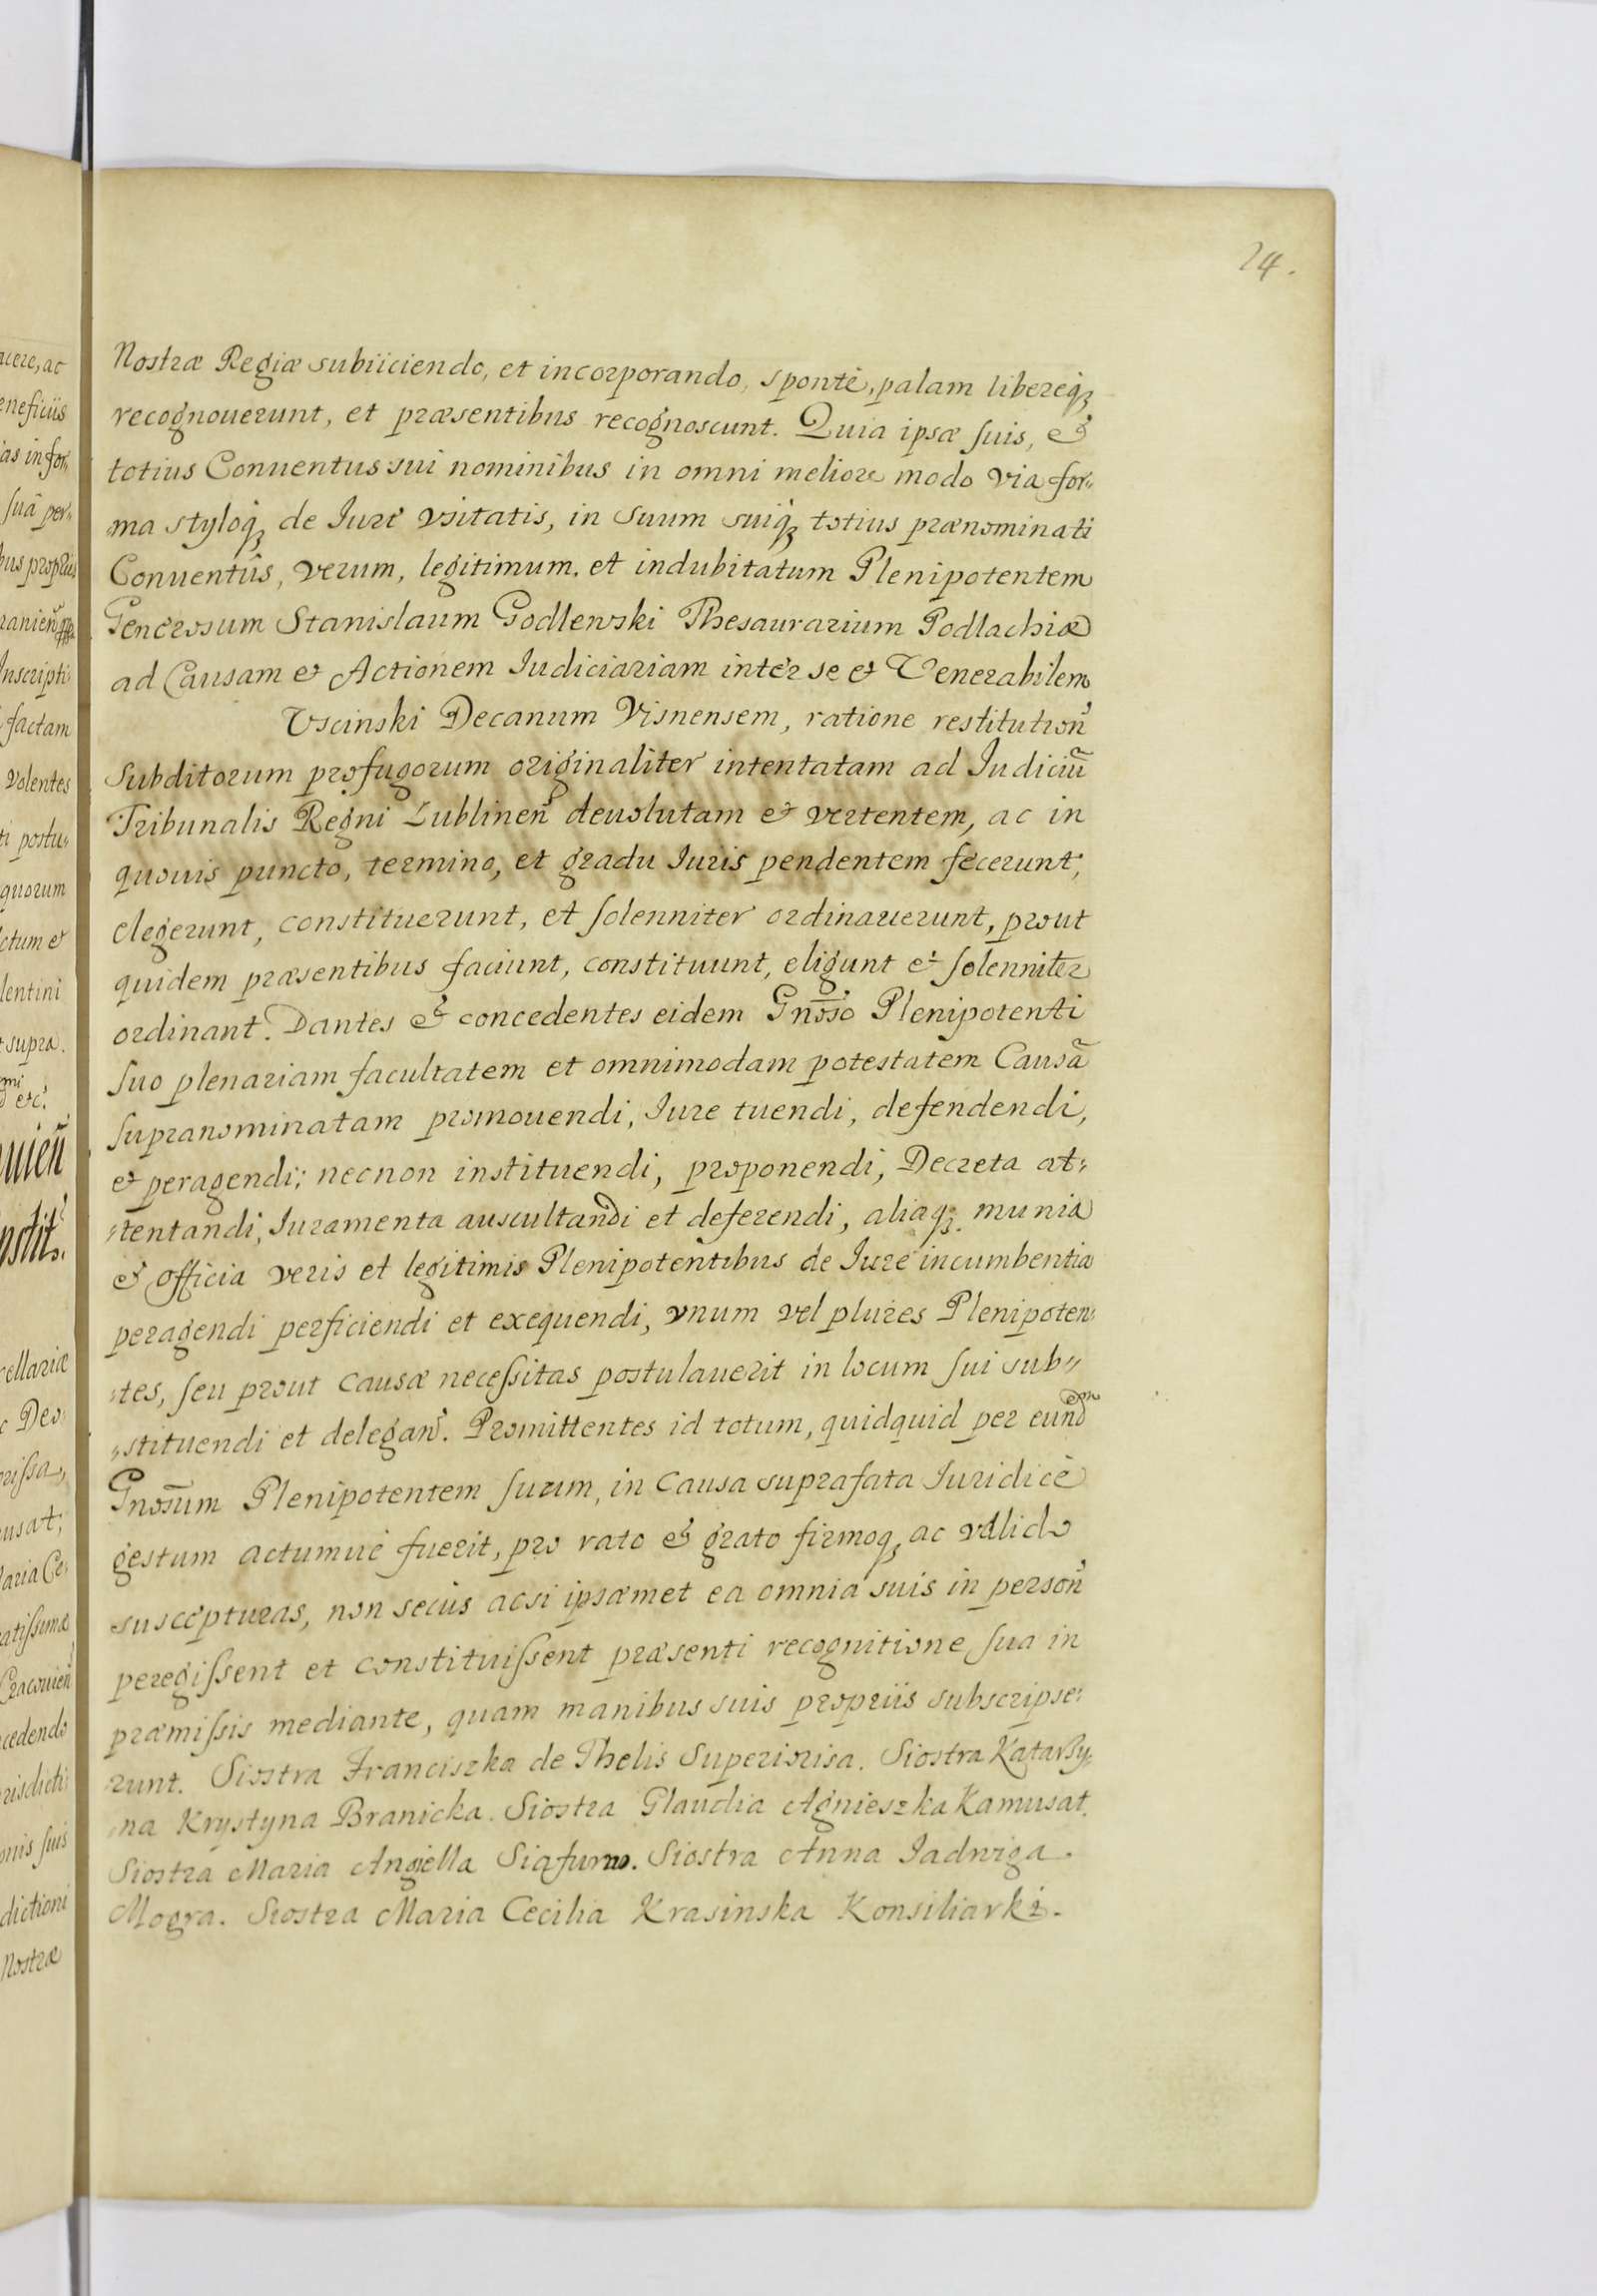 24.
Nostræ Regiæ subiiciendo, et incorporando, sponte, palam libereq́;
recognouerunt, et præsentibus recognoscunt. Quia ipsæ suis, et
totius Conuentus sui nominibus in omni meliore modo via for„
ma styloq́; de Jure vsitatis, in suum suiq́; totius prænominati
Conuentûs, verum, legitimum, et indubitatum Plenipotentem
Generosum Stanislaum Godlewski Thesaurarium Podlachiæ
ad Causam et Actionem Iudiciariam inter se et Venerabilem
Vscinski Decanum Visnensem, ratione restitution̄
subditorum profugorum originaliter intentatam ad Judiciū
Tribunalis Regni Lublinen̄ deuolutam et vertentem, ac in
quouis puncto, termino, et gradu Iuris pendentem fecerunt,
elegerunt, constituerunt, et solenniter ordinauerunt, prout
quidem præsentibus faciunt, constituunt, eligunt et solenniter
ordinant. Dantes et concedentes eidem Gn̄oso Plenipotenti
suo plenariam facultatem et omnimodam potestatem Causā
supranominatam promouendi, Iure tuendi, defendendi,
et peragendi; necnon instituendi, proponendi, Decreta at„
„tentandi, Iuramenta auscultandi et deferendi, aliaq; munia
et officia veris et legitimis Plenipotentibus de Iure incumbentia
peragendi perficiendi et exequendi, vnum vel plures Plenipoten„
„tes, seu prout causæ necessitas postulauerit in locum sui sub„
„stituendi et delegan̄. Promittentes id totum, quidquid per eund̄em
Gnosūm Plenipotentem suum, in Causa suprafata Iuridicè
gestum actumuè fuerit, pro rato et grato firmoq; ac valido
suscepturas, non secùs acsi ipsæmet ea omnia suis in person̄
peregissent et constituissent præsenti recognitione sua in
præmissis mediante, quam manibus suis propriis subscripse„
runt. Siostra Franciszka de Thelis Superiorisa. Siostra Katarzy„
„na Krystyna Branicka. Siostra Glaudia Agnieszka Kamusat.
Siostra Maria Angiella Siafurno. Siostra Anna Iadwiga
Mogra. Siostra Maria Cecilia Krasinska Konsiliarki.